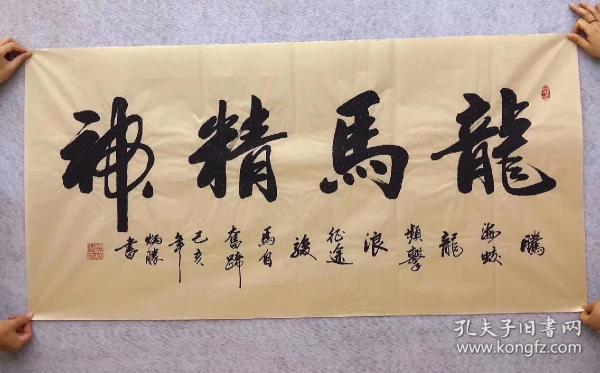 龍馬精神
騰
海蛟
龍
頻擊
浪
征途
駿
馬自
奮蹄
己亥
年
炳勝
書
孔夫子旧書网
www.kongfz.com